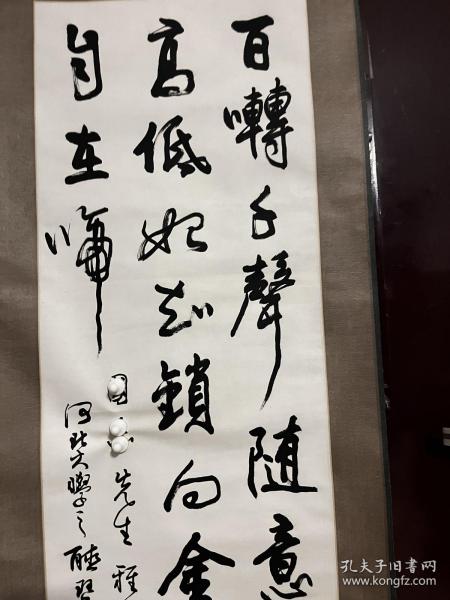 百囀千聲隨意
高低始知鎖向金
自在啼
先生雅
河北大學之
孔夫子旧书网
www.kongfz.com